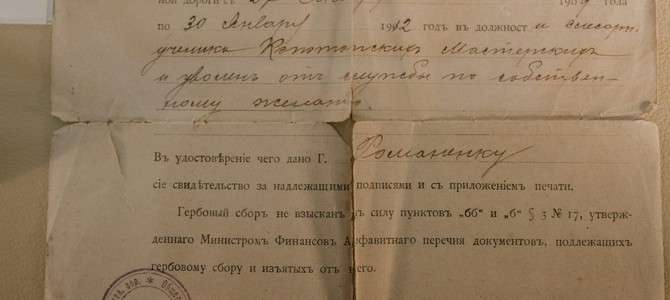 ной дороги съ
190 года
по 30 Января 1912 годъ въ должност и слесарн.
ученика Конотопскихъ Мастерскихъ
и уволенъ отъ службы по собствен-
ному желанію.
Въ удостовѣреніе чего дано Г. Романенку
сіе свидѣтельство за надлежащими подписями и съ приложеніемъ печати.
Гербовый сборъ не взысканъ въ силу пунктовъ „бб“ и „б“ § 3 № 17, утверж-
деннаго Министромъ Финансовъ Алфавитнаго перечня документовъ, подлежащихъ
гербовому сбору и изъятыхъ отъ него.